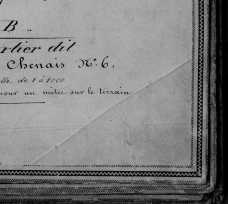 B.
rtier dit
Chenais N° 6.
lle de 1 à 1000
pour un mètre sur le terrain